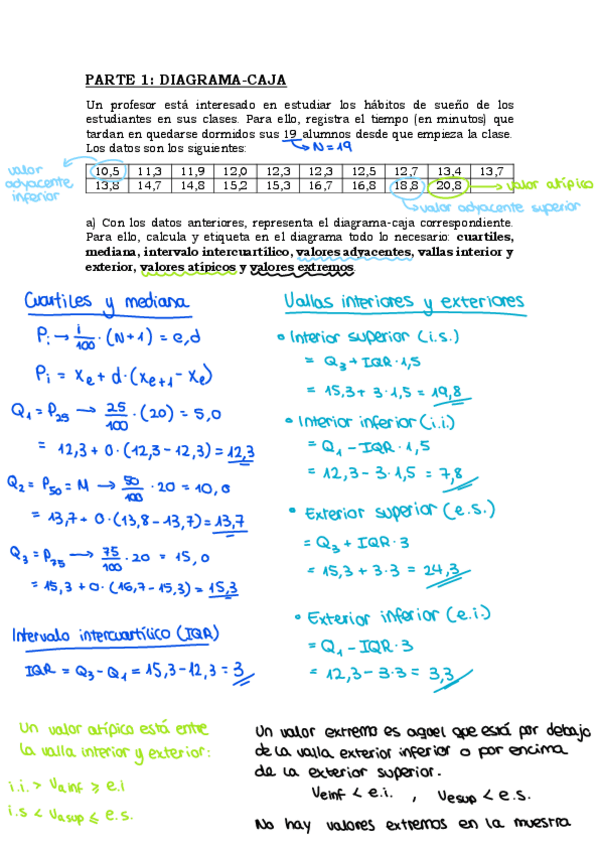 PARTE 1: DIAGRAMA-CAJA
Un profesor está interesado en estudiar los hábitos de sueño de los
estudiantes en sus clases. Para ello, registra el tiempo (en minutos) que
tardan en quedarse dormidos sus 19 alumnos desde que empieza la clase.
Los datos son los siguientes:
N = 19
valor
adyacente
inferior
10,5 11,3 11,9 12,0 12,3 12,3 12,5 12,7 13,4 13,7
13,8 14,7 14,8 15,2 15,3 16,7 16,8 18,8 20,8
valor atípico
valor adyacente superior
a) Con los datos anteriores, representa el diagrama-caja correspondiente.
Para ello, calcula y etiqueta en el diagrama todo lo necesario: cuartiles,
mediana, intervalo intercuartílico, valores adyacentes, vallas interior y
exterior, valores atípicos y valores extremos.
Cuartiles y mediana
Pi → i/100 · (N+1) = e,d
Pi = xe + d · (xe+1 − xe)
Q1 = P25 → 25/100 · (20) = 5,0
= 12,3 + 0 · (12,3 − 12,3) = 12,3
Q2 = P50 = M → 50/100 · 20 = 10,0
= 13,7 + 0 · (13,8 − 13,7) = 13,7
Q3 = P75 → 75/100 · 20 = 15,0
= 15,3 + 0 · (16,7 − 15,3) = 15,3
Intervalo intercuartílico (IQR)
IQR = Q3 − Q1 = 15,3 − 12,3 = 3
Vallas interiores y exteriores
• Interior superior (i.s.)
= Q3 + IQR · 1,5
= 15,3 + 3 · 1,5 = 19,8
• Interior inferior (i.i.)
= Q1 − IQR · 1,5
= 12,3 − 3 · 1,5 = 7,8
• Exterior superior (e.s.)
= Q3 + IQR · 3
= 15,3 + 3 · 3 = 24,3
• Exterior inferior (e.i.)
= Q1 − IQR · 3
= 12,3 − 3 · 3 = 3,3
Un valor atípico está entre
la valla interior y exterior:
i.i. > Va inf ≥ e.i
i.s < Va sup ≤ e.s.
Un valor extremo es aquel que está por debajo
de la valla exterior inferior o por encima
de la exterior superior.
Ve inf < e.i. , Ve sup < e.s.
No hay valores extremos en la muestra